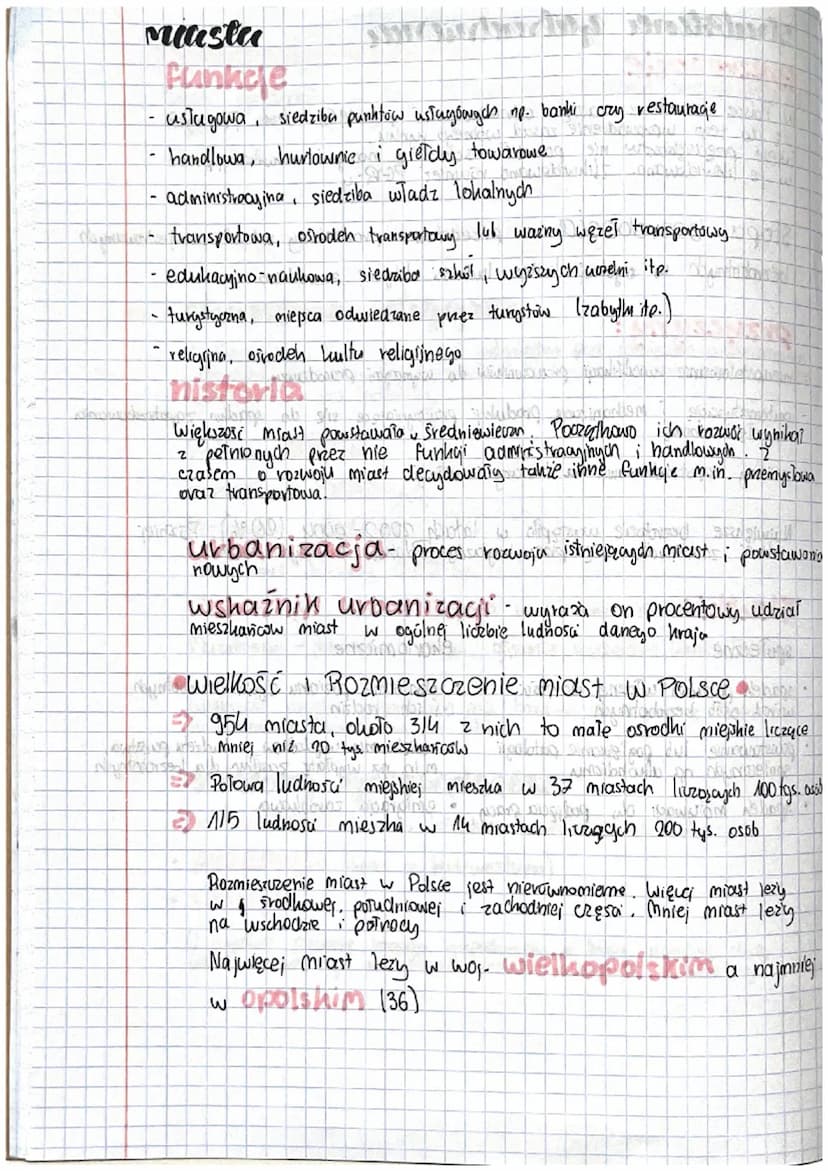 miasta
funkcje
- usługowa, siedziba punktów usługowych np. banki czy restauracje
- handlowa, hurtownie i giełdy towarowe
- administracyjna, siedziba władz lokalnych
- transportowa, ośrodek transportowy lub ważny węzeł transportowy
- edukacyjno-naukowa, siedziba szkół, wyższych uczelni itp.
- turystyczna, miejsca odwiedzane przez turystów (zabytki itp.)
- religijna, ośrodek kultu religijnego
historia
Większość miast powstawało w średniowieczu. Początkowo ich rozwój wynikał
z pełnionych przez nie funkcji administracyjnych i handlowych. Z
czasem o rozwoju miast decydowały także inne funkcje m.in. przemysłowa
oraz transportowa.
urbanizacja - proces rozwoju istniejących miast i powstawania
nowych
wskaźnik urbanizacji - wyraża on procentowy udział
mieszkańców miast w ogólnej liczbie ludności danego kraju
• Wielkość i Rozmieszczenie miast w Polsce •
⇒ 954 miasta, około 3/4 z nich to małe ośrodki miejskie liczące
mniej niż 20 tys. mieszkańców
⇒ Połowa ludności miejskiej mieszka w 37 miastach liczących 100 tys. osób
⇒ 1/5 ludności mieszka w 14 miastach liczących 200 tys. osób
Rozmieszczenie miast w Polsce jest nierównomierne. Więcej miast leży
w środkowej, południowej i zachodniej części. Mniej miast leży
na wschodzie i północy
Najwięcej miast leży w woj. wielkopolskim a najmniej
w opolskim (36)